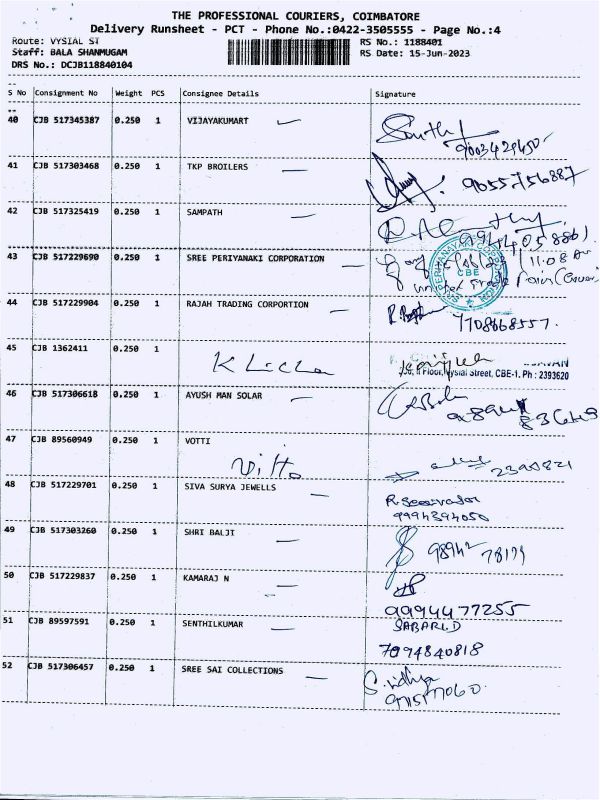 THE PROFESSIONAL COURIERS, COIMBATORE
Delivery Runsheet - PCT - Phone No.:0422-3505555 - Page No.:4
Route: VYSIAL ST RS No.: 1188401
Staff: BALA SHANMUGAM RS Date: 15-Jun-2023
DRS No.: DCJB118840104
S No Consignment No Weight PCS Consignee Details Signature
40 CJB 517345387 0.250 1 VIJAYAKUMART
41 CJB 517303468 0.250 1 TKP BROILERS
9655756887
42 CJB 517325419 0.250 1 SAMPATH
43 CJB 517229690 0.250 1 SREE PERIYANAKI CORPORATION
CBE
44 CJB 517229904 0.250 1 RAJAH TRADING CORPORTION
7708668557.
45 CJB 1362411 0.250 1
Floor, Vysial Street, CBE-1. Ph : 2393620
46 CJB 517306618 0.250 1 AYUSH MAN SOLAR
47 CJB 89560949 0.250 1 VOTTI
Vitto
2390821
48 CJB 517229701 0.250 1 SIVA SURYA JEWELLS
9994394050
49 CJB 517303260 0.250 1 SHRI BALJI
50 CJB 517229837 0.250 1 KAMARAJ N
9994477255
51 CJB 89597591 0.250 1 SENTHILKUMAR SABARI.D
7094840818
52 CJB 517306457 0.250 1 SREE SAI COLLECTIONS S. Vidhya